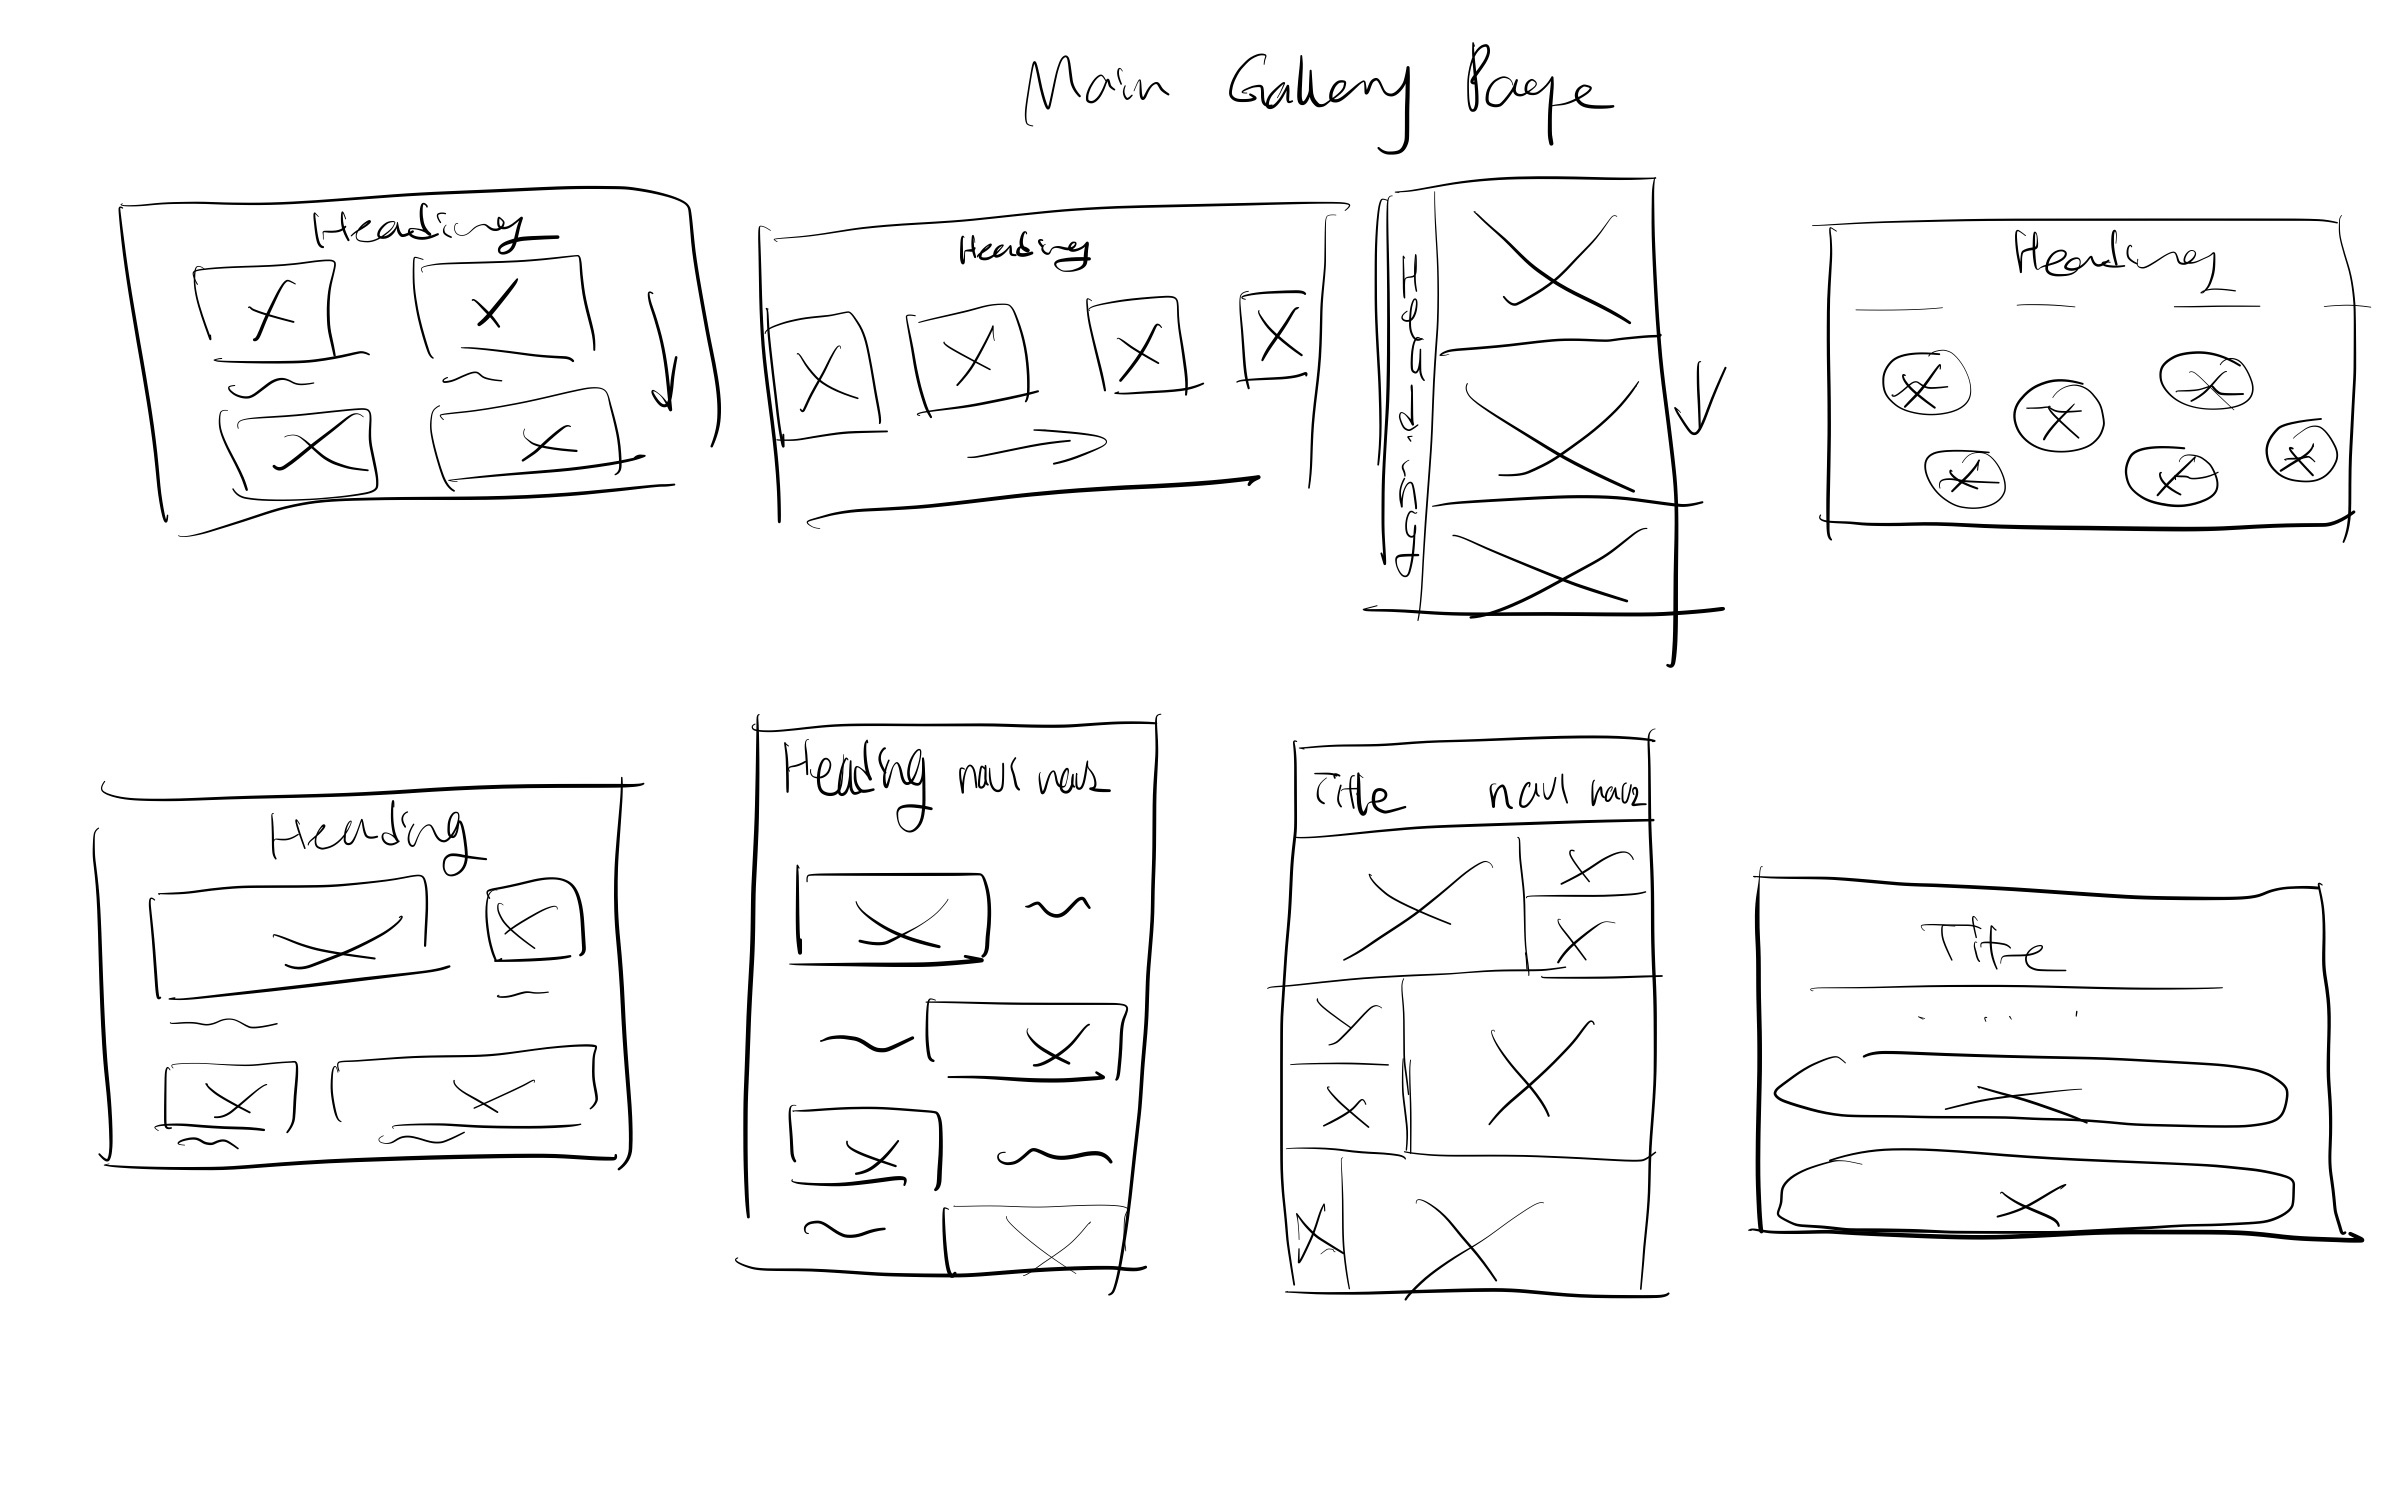 Main Gallery Page
Heading
Heading
Heading
Heading
Heading
Heading nav1 nav2
Title nav1 nav2
Title